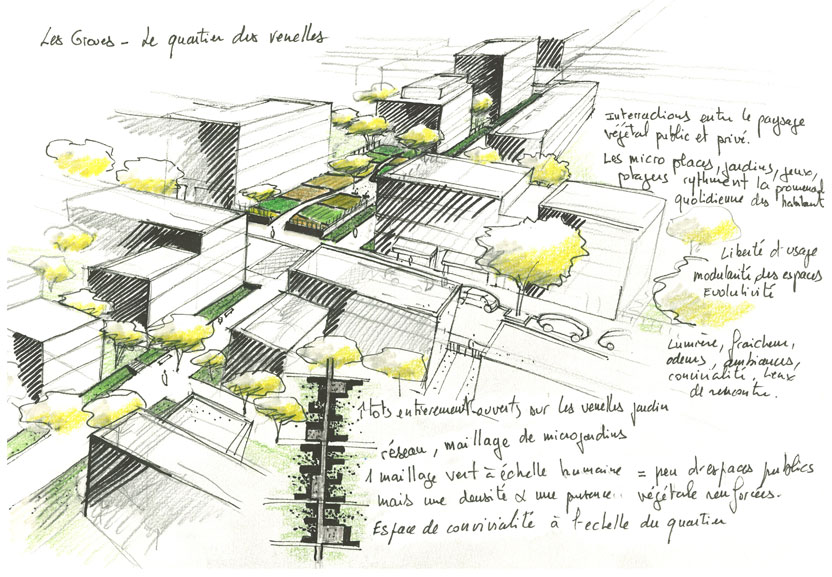 Les Groues - Le quartier des venelles
Interractions entre le paysage
végétal public et privé.
Les micro places, jardins, jeux,
potagers rythment la promenade
quotidienne des habitant
Liberté d'usage
modularité des espaces
Evolutivité
Lumière, fraicheur,
odeurs, ambiances,
convivialité, lieux
de rencontre.
ilots entierement ouverts sur les venelles jardin
réseau, maillage de microjardins
1 maillage vert à échelle humaine = peu d'espaces publics
mais une densité & une présence.. végétale renforcées.
Espace de convivialité à l'echelle du quartier